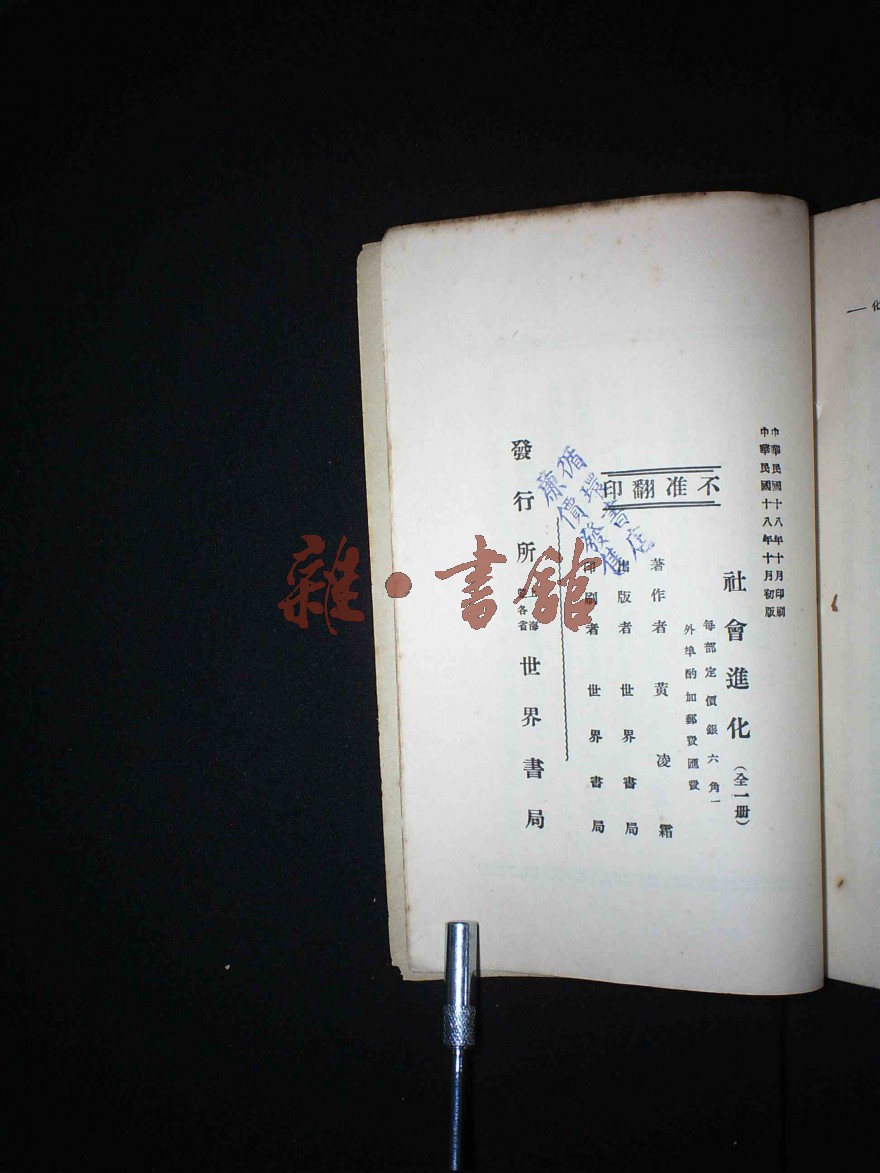 中華民國十八年十月印刷
中華民國十八年十月初版
社會進化(全一冊)
每部定價銀六角一
外埠酌加郵費匯費
不准翻印
著作者 黃凌霜
出版者 世界書局
印刷者 世界書局
發行所 上海 暨各省 世界書局
循環書店
廉價發售
雜·書館
化